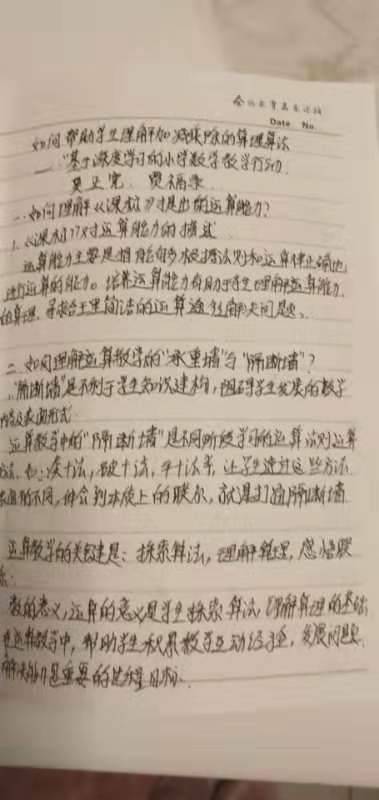 Date No.
如何帮助学生理解加减乘除的算理算法
——"基于深度学习的小学数学教学行动
吴正宪 贾福录
一.如何理解《课标》对提出的运算能力?
1.《课标》对运算能力的描述
运算能力主要是指能够根据法则和运算律正确地
进行运算的能力。培养运算能力有助于学生理解运算能力
的算理,寻求合理简洁的运算途径解决问题。
二.如何理解运算教学的"承重墙"与"隔断墙"?
"隔断墙"是不利于学生知识建构,阻碍学生发展的教学
内容及表面形式
运算教学中的"隔断墙"是不同阶段学习的运算法则运算
方法.如:凑十法,破十法,平十法等,让学生透过这些方法
表面的不同,体会到本质上的联系,就是打通隔断墙
运算教学的关键是:探索算法,理解算理,感悟联
系.
数的意义,运算的意义是学生探索算法,理解算理的基础
在运算教学中,帮助学生积累数学活动经验,发展问题
解决能力是重要的目标.